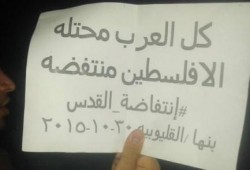 كل العرب محتله
الافلسطين منتفضه
#إنتفاضة_القدس
بنها/القليوبيه ٣٠-١٠-٢٠١٥